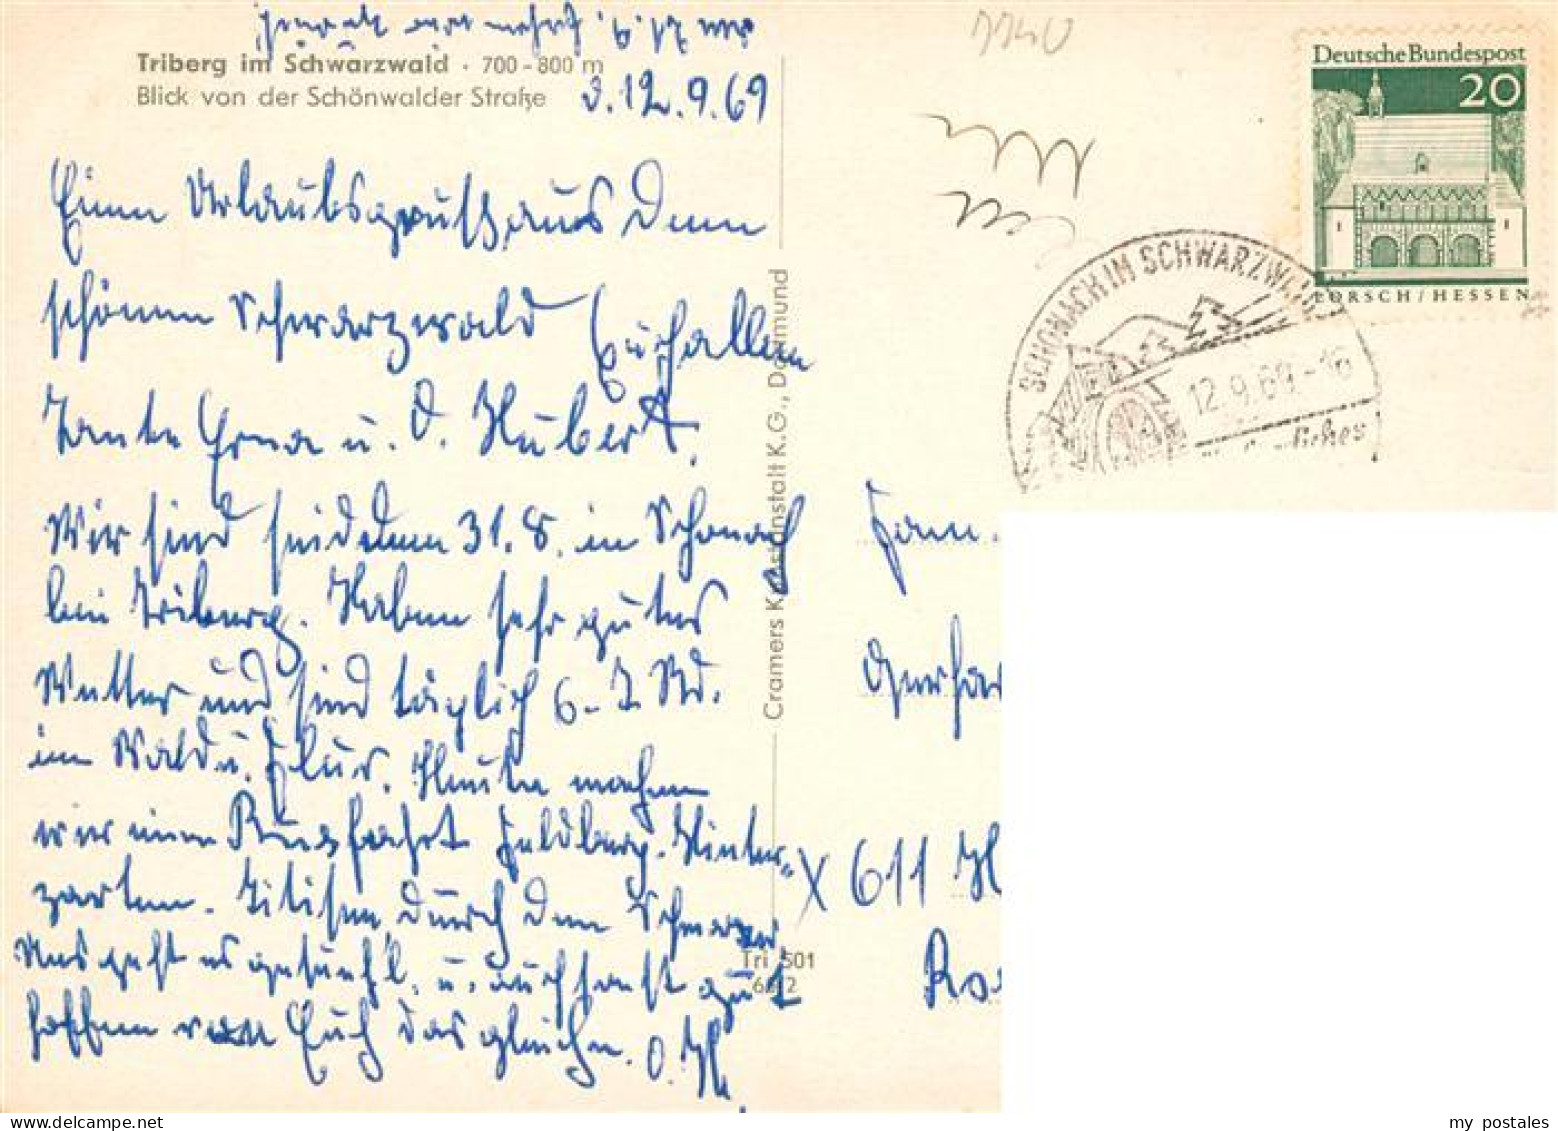 Triberg im Schwarzwald · 700-800 m
Blick von der Schönwalder Straße
d. 12.9.69
Einen Urlaubsgruß aus dem
schönen Schwarzwald Euch allen
Tante Erna u. O. Hubert.
Wir sind seid dem 31. 8. in Schonach
bei Triberg. Haben sehr gutes
Wetter und sind täglich 6-7 Std.
im Wald u. Flur. Heute machen
wir eine Rundfahrt Feldberg-Hinter-
zarten. Titisee, durch den Schwarzw.
Uns geht es gesundh'l. u. auch sonst gut
hoffen von Euch das gleiche. O. H.
Cramers Kunstanstalt K.G., Dortmund
Tri 501
Deutsche Bundespost
20
LORSCH/HESSEN
SCHONACH IM SCHWARZWALD
12.9.69-16
Fam.
Gerhar
X 611 H
Ro
my postales
www.delcampe.net